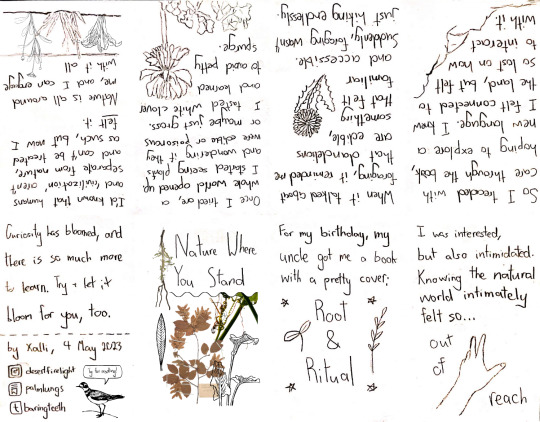 Nature Where
You Stand
For my birthday, my
uncle got me a book
with a pretty cover:
Root
&
Ritual
I was interested,
but also intimidated.
Knowing the natural
world intimately
felt so...
out
of
reach
So I treaded with
care through the book,
hoping to explore a
new language. I knew
I felt connected to
the land, but felt
so lost on how
to interact
with it.
When it talked about
foraging, it reminded me
that dandelions
are edible,
something
that felt
familiar
and accessible.
Suddenly, foraging wasn't
just hiking endlessly.
Once I tried one, a
whole world opened up
I started seeing plants
and wondering if they
were edible or poisonous
or maybe just gross.
I tasted white clover
and learned
to avoid petty
spurge.
I'd known that humans
and civilization aren't
separate from nature,
and can't be treated
as such, but now I
felt it.
Nature is all around
me, and I can engage
with it all
Curiosity has bloomed, and
there is so much more
to learn. Try + let it
bloom for you, too.
by Xalli, 4 May 2023
desertfirelight
palmlungs
t baringteeth
ty for reading!